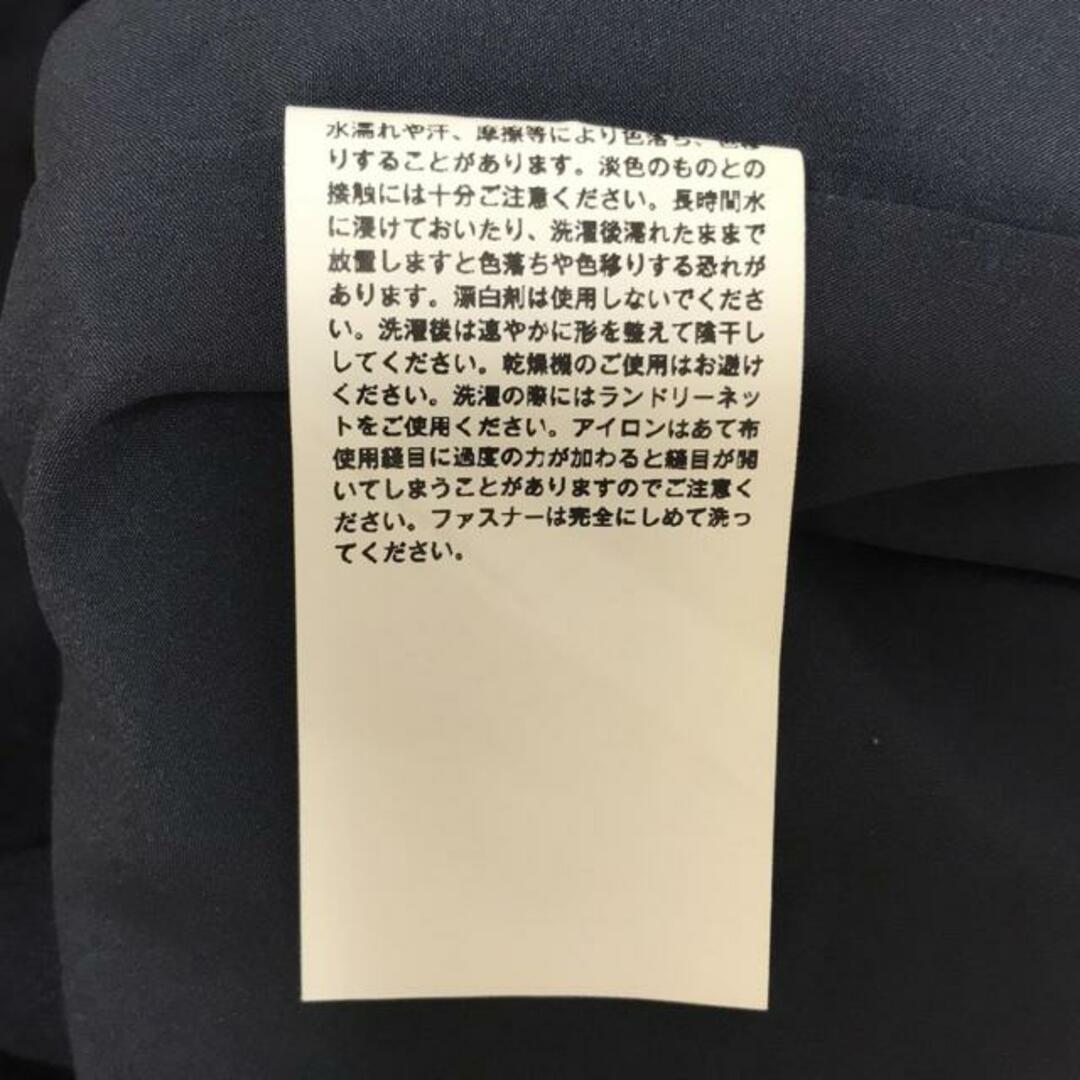 水濡れや汗、摩擦等により色落ち、色移
りすることがあります。淡色のものとの
接触には十分ご注意ください。長時間水
に浸けておいたり、洗濯後濡れたままで
放置しますと色落ちや色移りする恐れが
あります。漂白剤は使用しないでくださ
い。洗濯後は速やかに形を整えて陰干し
してください。乾燥機のご使用はお避け
ください。洗濯の際にはランドリーネッ
トをご使用ください。アイロンはあて布
使用縫目に過度の力が加わると縫目が開
いてしまうことがありますのでご注意く
ださい。ファスナーは完全にしめて洗っ
てください。